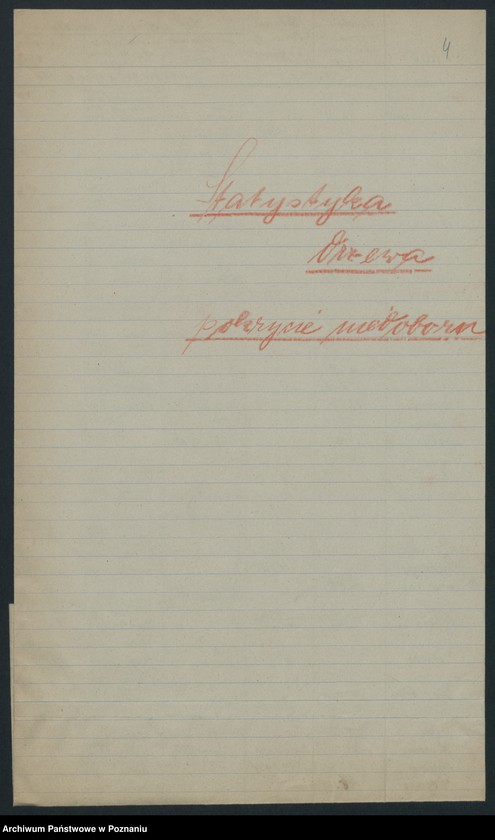 4
Statystyka
drzewa
pokrycie niedoboru
Archiwum Państwowe w Poznaniu